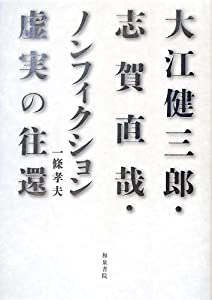 大江健三郎・
志賀直哉・
ノンフィクション
虚実の往還
一條孝夫
和泉書院